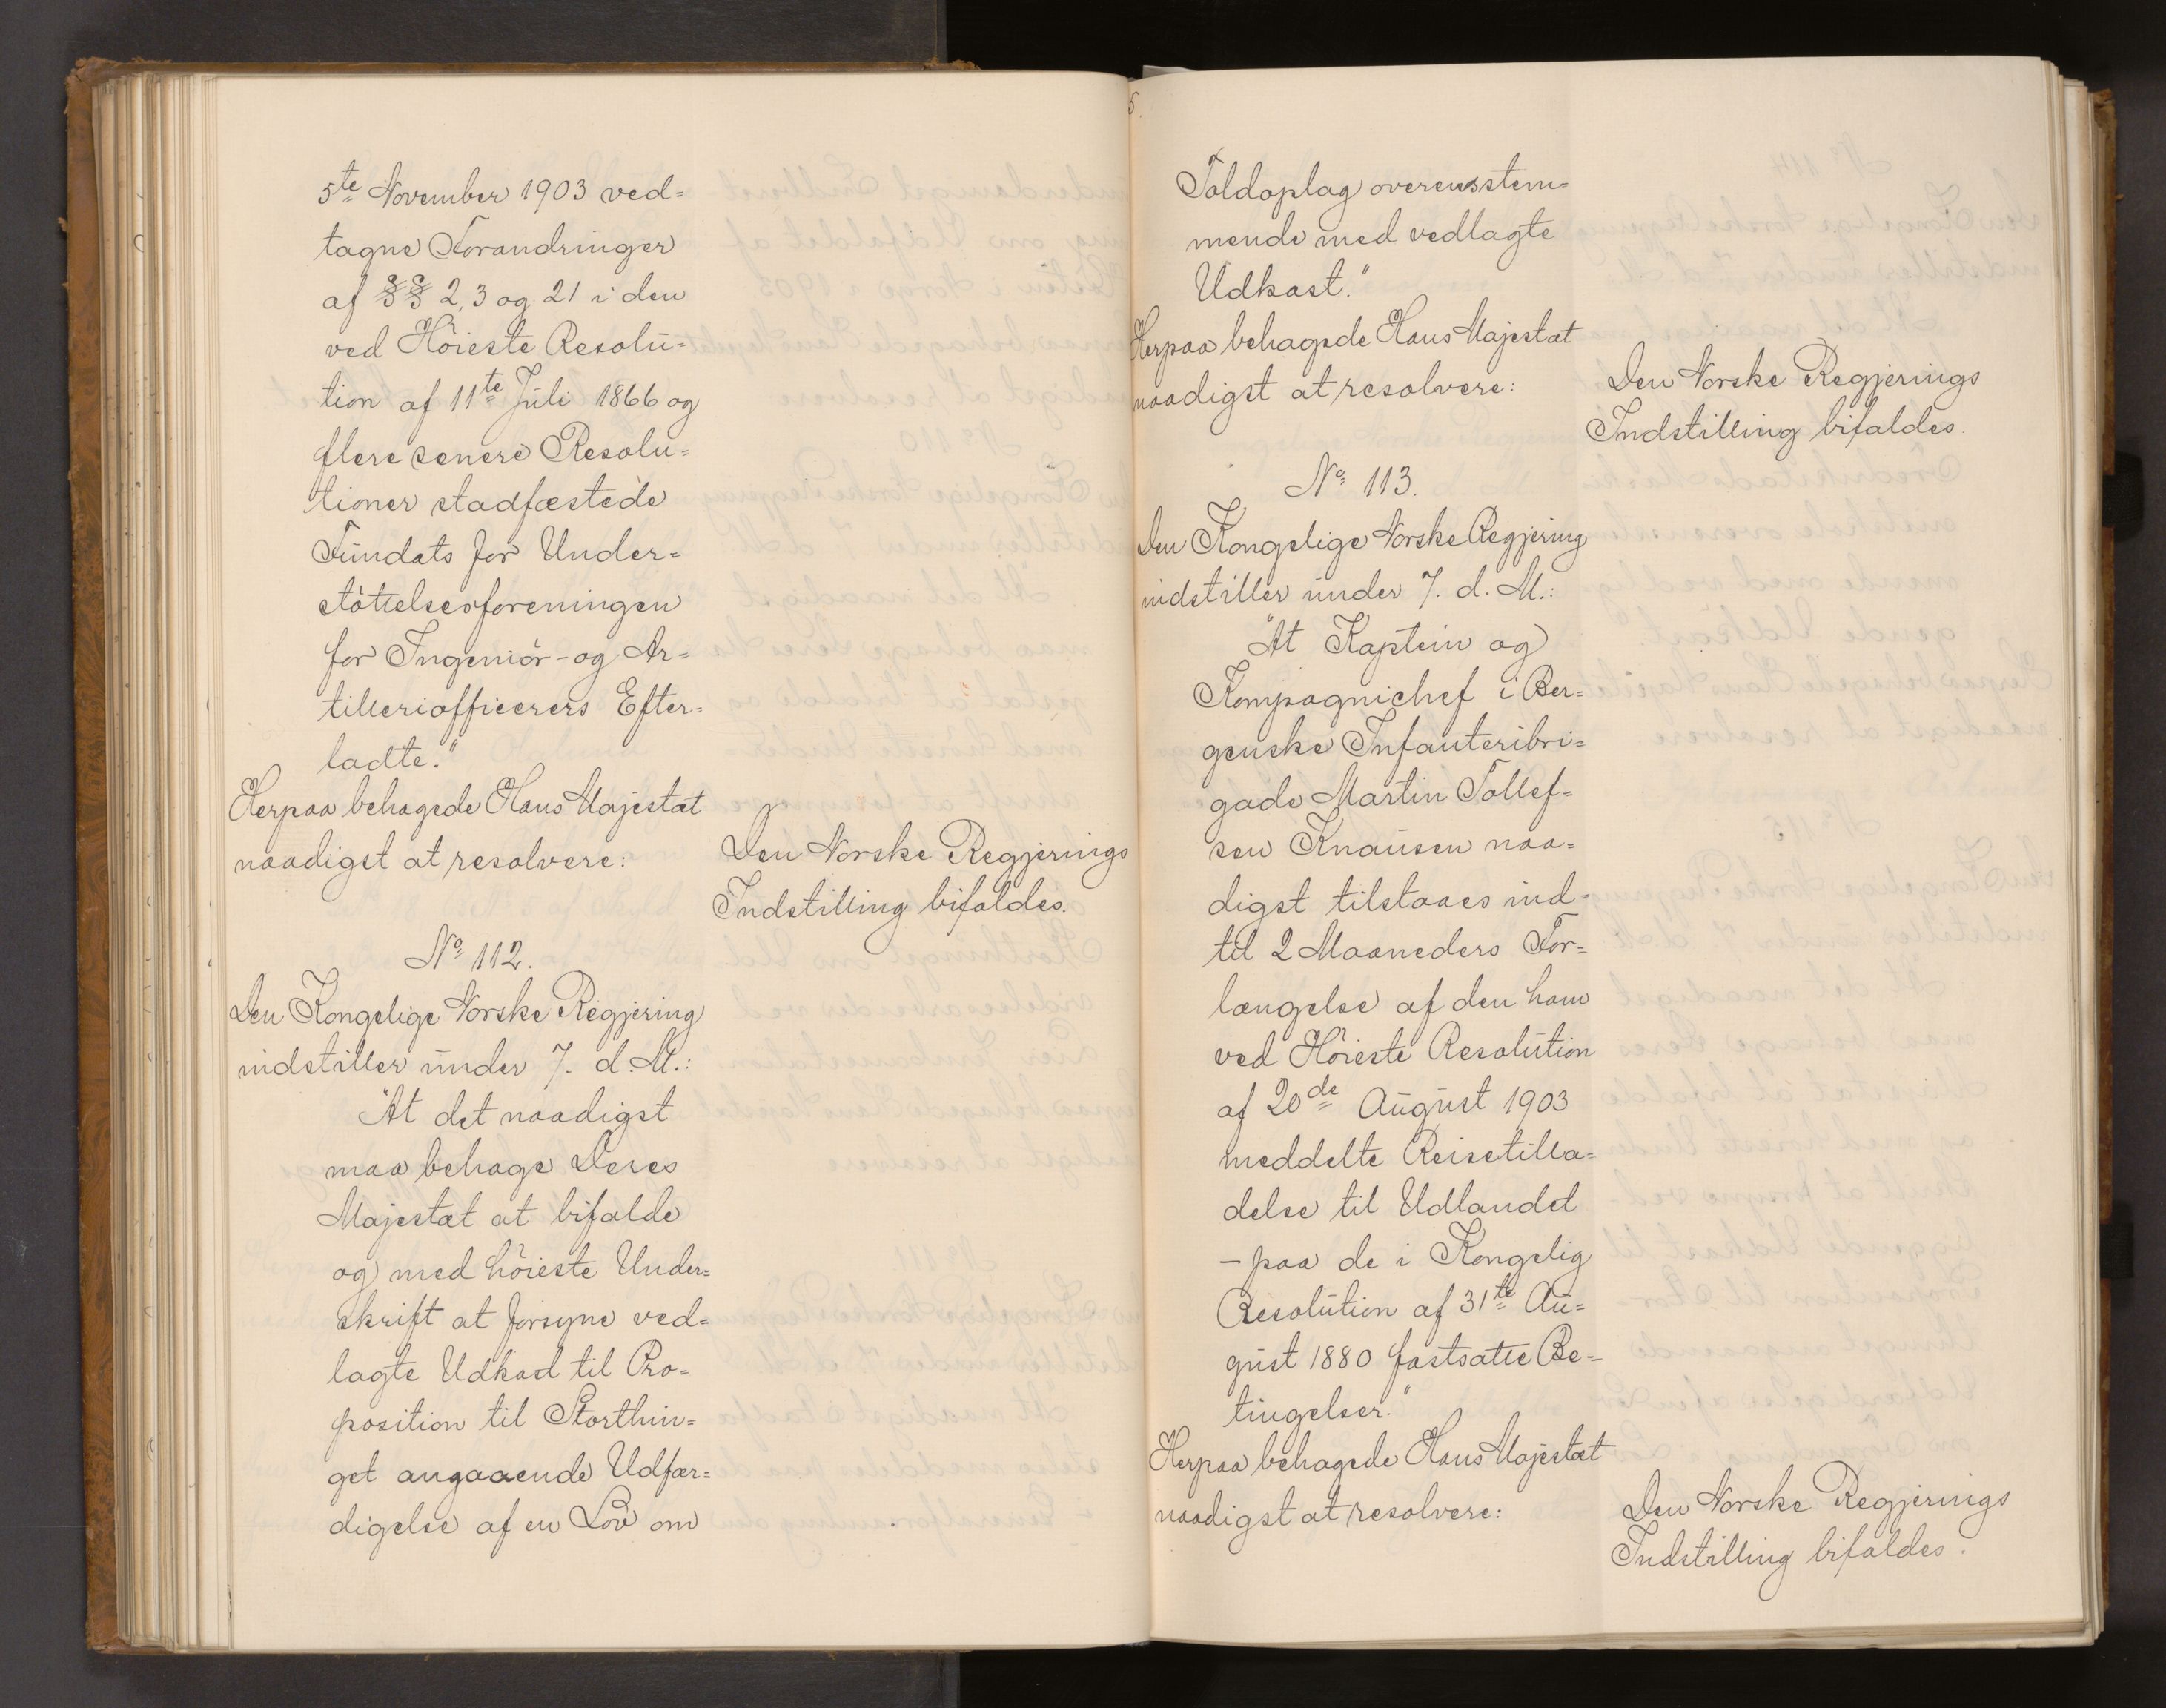 5te November 1903 ved=
tagne Forandringer
af §§ 2, 3 og 21 i den
ved Höieste Resolu=
tion af 11te Juli 1866 og
flere senere Resolu=
tioner stadfæstede
Fundats for Under=
stöttelsesforeningen
for Ingeniör- og Ar=
tilleriofficerers Efter=
ladte."
Herpaa behagede Hans Majestæt
naadigst at resolvere:
Den Norske Regjerings
Indstilling bifaldes.
No 112.
Den Kongelige Norske Regjering
indstiller under 7. d. M.:
"At det naadigst
maa behage Deres
Majestæt at bifalde
og med höieste Under=
skrift at forsyne ved=
lagte Udkast til Pro=
position til Storthin=
get angaaende Udfær=
digelse af en Lov om
Toldoplag overensstem=
mende med vedlagte
Udkast."
Herpaa behagede Hans Majestæt
naadigst at resolvere:
Den Norske Regjerings
Indstilling bifaldes.
No 113.
Den Kongelige Norske Regjering
indstiller under 7. d. M.:
"At Kaptein og
Kompagnichef i Ber=
genske Infanteribri=
gade Martin Tollef=
sen Knausen naa=
digst tilstaaes ind=
til 2 Maaneders For=
længelse af den ham
ved Höieste Resolution
af 20de August 1903
meddelte Reisetilla=
delse til Udlandet
- paa de i Kongelig
Resolution af 31te Au=
gust 1880 fastsatte Be=
tingelser."
Herpaa behagede Hans Majestæt
naadigst at resolvere:
Den Norske Regjerings
Indstilling bifaldes.